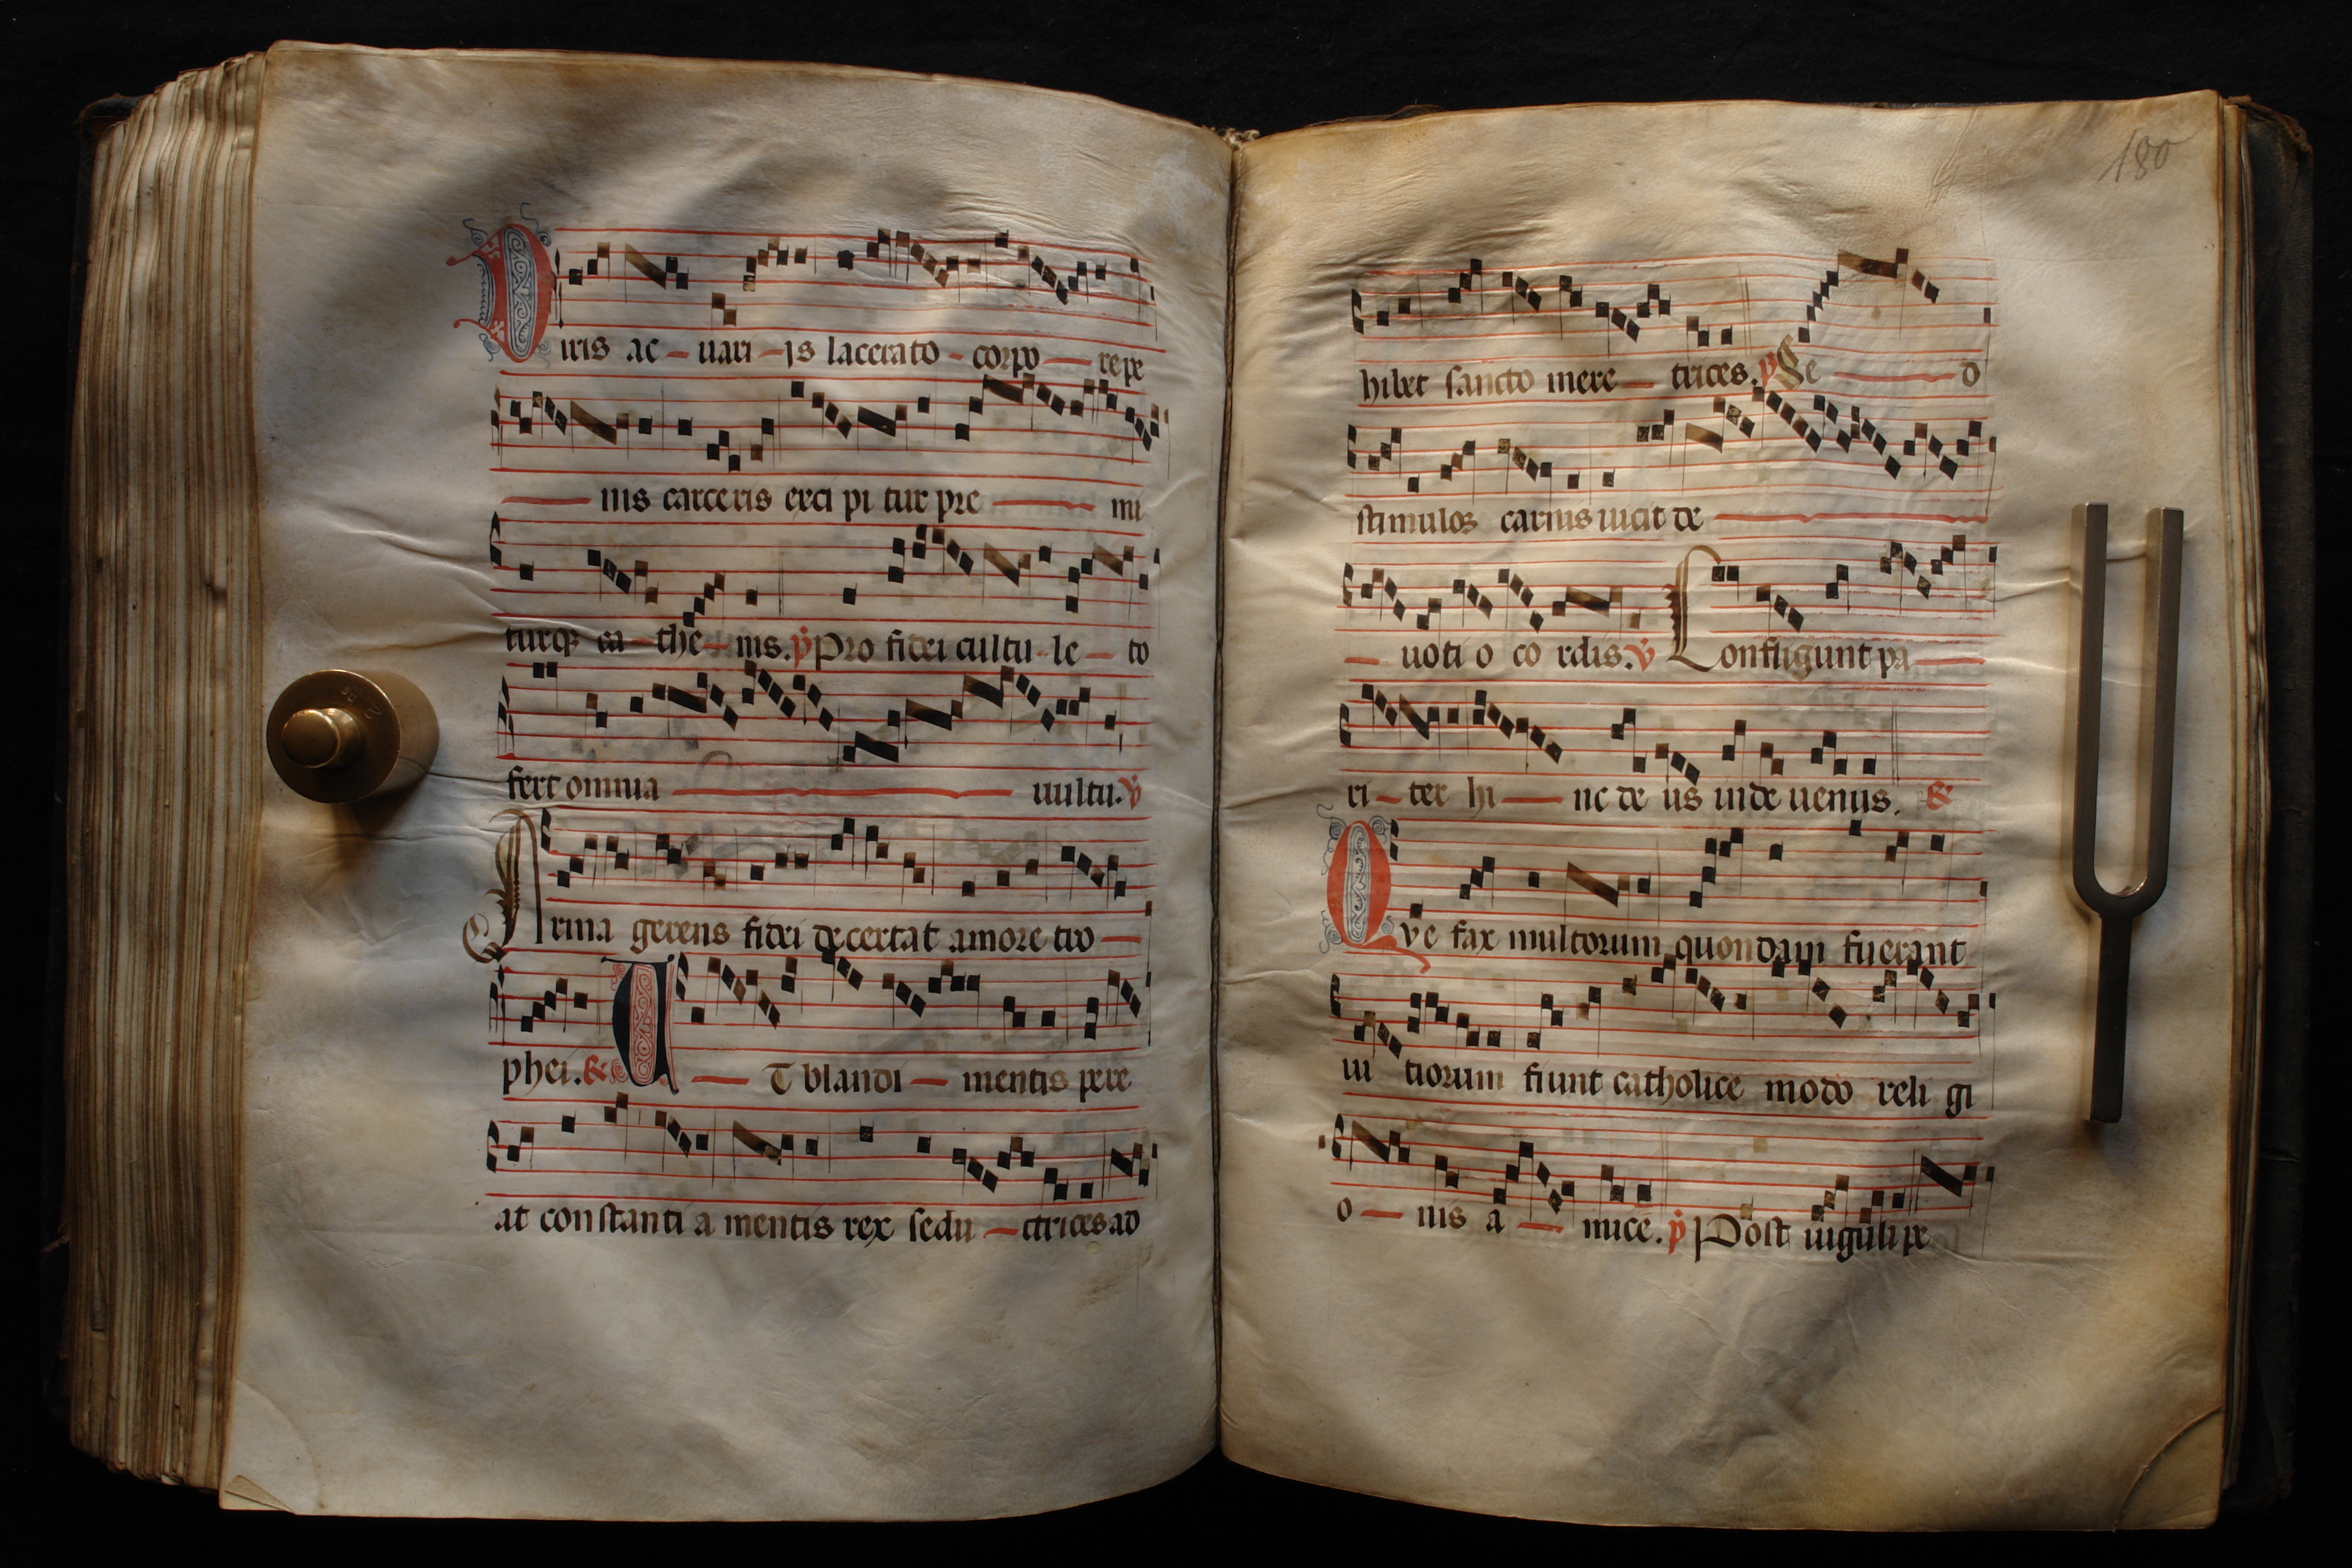 Diris ac - uari - is lacerato - corpo - repe
nis carceris exci pi tur pre mi
turq; ca - the - nis. p Pro fidei cultu - le - to
fert omnia uultu. v
Arma gerens fidei decertat amore tro -
phei. & ET blandi - mentis pere
at constanti a mentis rex sedu - ctrices ad
180
hibet sancto mere - trices. p Se d
stimulos carnis uicit de
- uoti o co rdis. v Confligunt pa -
ri - ter hi - nc de us inde uenus. &
Qve fax multorum quondam fuerant
ui tiorum fiunt catholice modo reli gi
o - nis a - mice. p Post uiguli pe